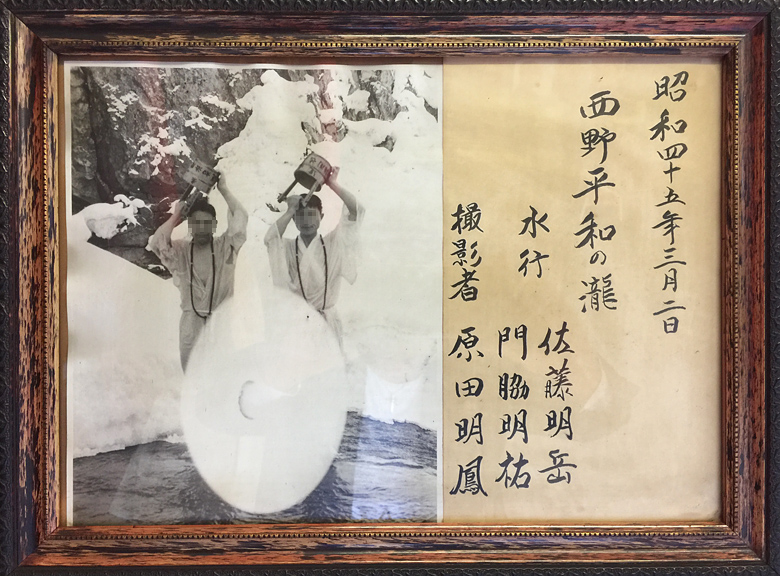 昭和四十五年三月二日
西野平和の瀧
水行
佐藤明岳
門脇明祐
撮影者 原田明鳳